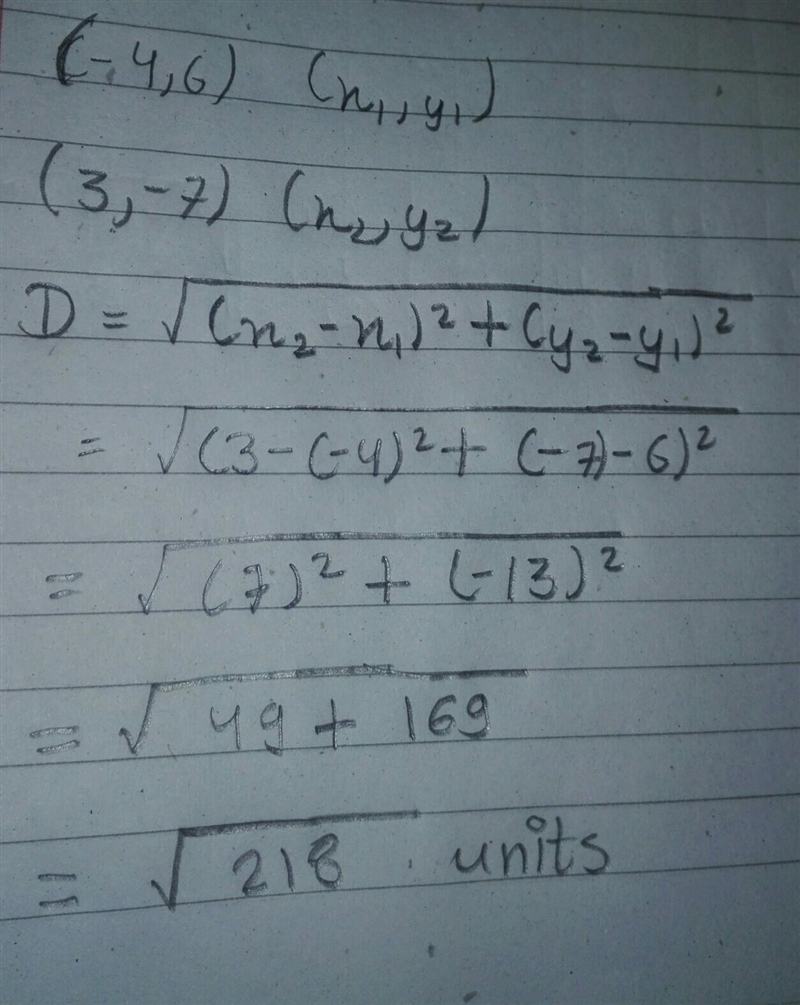 (-4,6) (x₁, y₁)
(3,-7) (x₂, y₂)
D = √(x₂-x₁)² + (y₂-y₁)²
= √(3-(-4)² + (-7)-6)²
= √(7)² + (-13)²
= √49 + 169
= √218 units